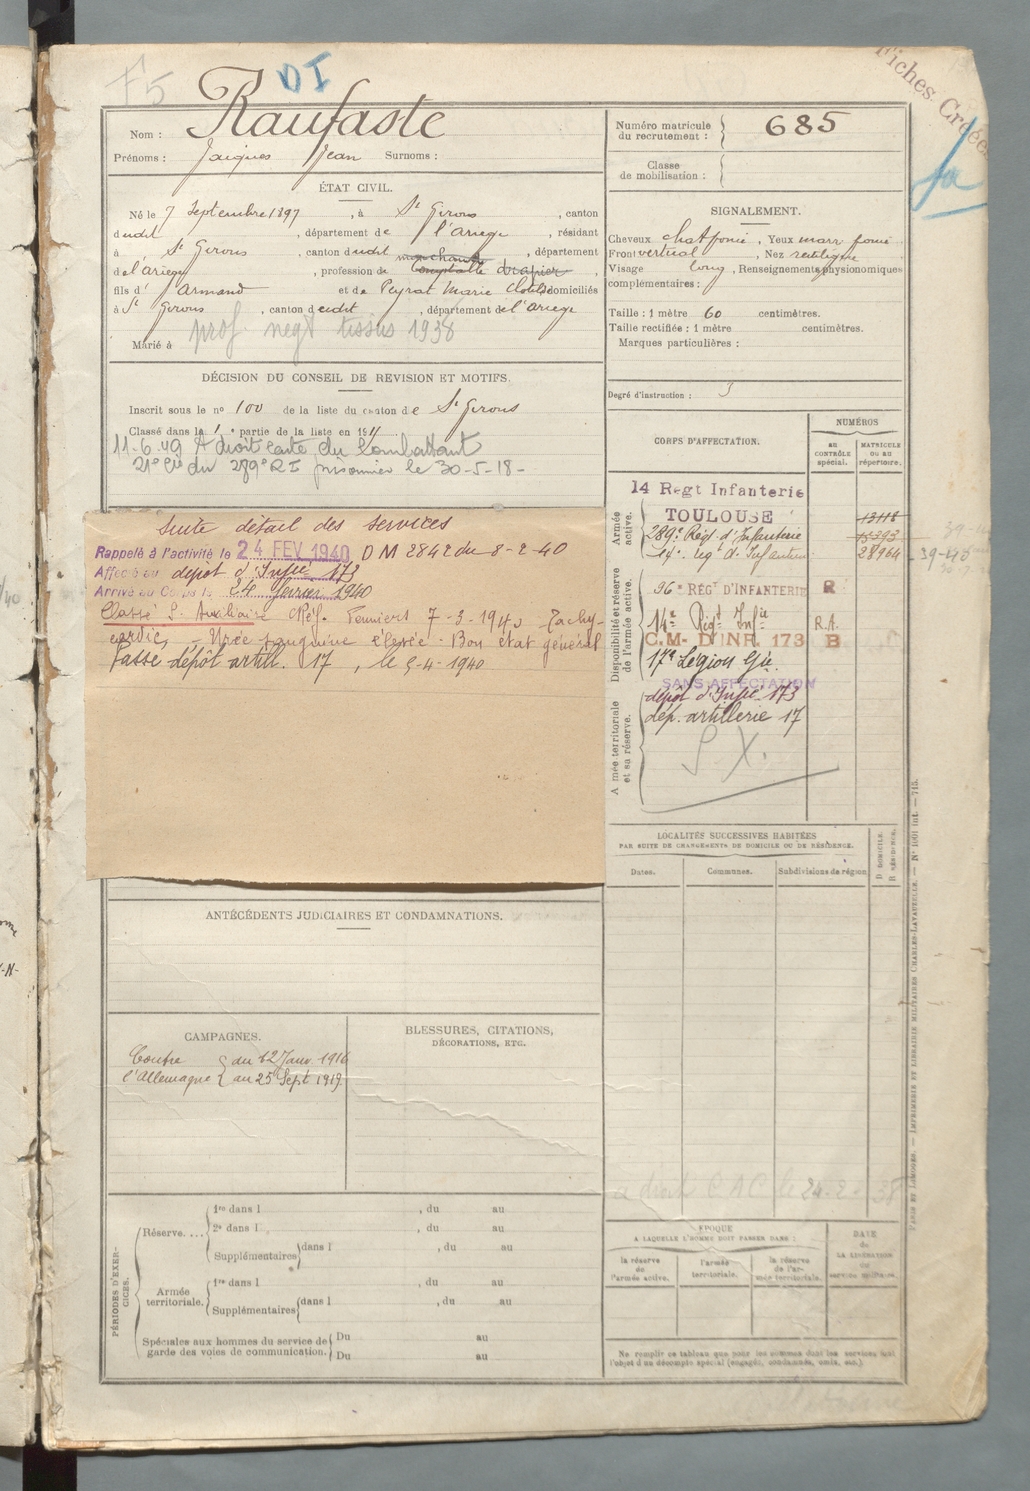 F5
DI
Fiches Créées
fa
Nom : Raufaste
Prénoms : Jacques Jean Surnoms :
Numéro matricule du recrutement : 685
Classe de mobilisation :
ÉTAT CIVIL.
Né le 7 Septembre 1897, à St Girons, canton
dudit, département de l'Ariège, résidant
à St Girons, canton dudit, département
de l'Ariège, profession de comptable marchand drapier,
fils d'Armand et de Peyrat Marie Clotilde domiciliés
à St Girons, canton dudit, département de l'Ariège
prof. negt tissus 1938
Marié à
SIGNALEMENT.
Cheveux chat foncé, Yeux marr foncé
Front vertical, Nez rectiligne
Visage long, Renseignements physionomiques
complémentaires :
Taille : 1 mètre 60 centimètres.
Taille rectifiée : 1 mètre centimètres.
Marques particulières :
Degré d'instruction : 3
DÉCISION DU CONSEIL DE REVISION ET MOTIFS.
Inscrit sous le no 100 de la liste du canton de St Girons
Classé dans la 1e partie de la liste en 191
11-6-49 A droit carte du Combattant
21e Cie du 289e R I prisonnier le 30-5-18-
Suite détail des services
Rappelé à l'activité le 24 FEV 1940 D M 2842 du 8-2-40
Affecté au dépôt d'Infie 173
Arrivé au Corps le 24 février 1940
Classé S. Auxiliaire Réf. 7-3-1940 Tachy-
cardie, - Urée sanguine élevée. Bon état général
Passé dépôt artill. 17, le 5-4-1940
CORPS D'AFFECTATION.
NUMÉROS
AU CONTRÔLE spécial.
MATRICULE OU AU répertoire.
Armée active.
14 Regt Infanterie
TOULOUSE 13118
289e Rég. d'Infanterie 15293
14e rég. d'Infanterie 28964
39-40
Disponibilité et réserve de l'armée active.
96e RÉGT D'INFANTERIE R
14e Régt Infie R.A.
C.M. D'INF. 173 B
17e Légion Gie
SANS AFFECTATION
Armée territoriale et sa réserve.
dépôt d'Infie 173
dép. artillerie 17
S. X.
LOCALITÉS SUCCESSIVES HABITÉES
PAR SUITE DE CHANGEMENTS DE DOMICILE OU DE RÉSIDENCE.
Dates. Communes. Subdivisions de région
D DOMICILE.
R RÉSIDENCE.
ANTÉCÉDENTS JUDICIAIRES ET CONDAMNATIONS.
CAMPAGNES.
Contre du 12 Janv. 1916
l'Allemagne au 25 Sept 1919
BLESSURES, CITATIONS,
DÉCORATIONS, ETC.
a droit C A C le 24-2-38
PÉRIODES D'EXERCICES.
Réserve....
1re dans l , du au
2e dans l , du au
Supplémentaires dans l , du au
Armée territoriale.
1re dans l , du au
Supplémentaires dans l , du au
Spéciales aux hommes du service de garde des voies de communication.
Du au
Du au
ÉPOQUE
A LAQUELLE L'HOMME DOIT PASSER DANS :
la réserve de l'armée active.
l'armée territoriale.
la réserve de l'armée territoriale.
DATE de LA LIBÉRATION du service militaire.
Ne remplir ce tableau que pour les hommes dont les services font
l'objet d'un décompte spécial (engagés, condamnés, omis, etc.)
PARIS ET LIMOGES. — IMPRIMERIE ET LIBRAIRIE MILITAIRES CHARLES-LAVAUZELLE. — No 1001 int. — 715.